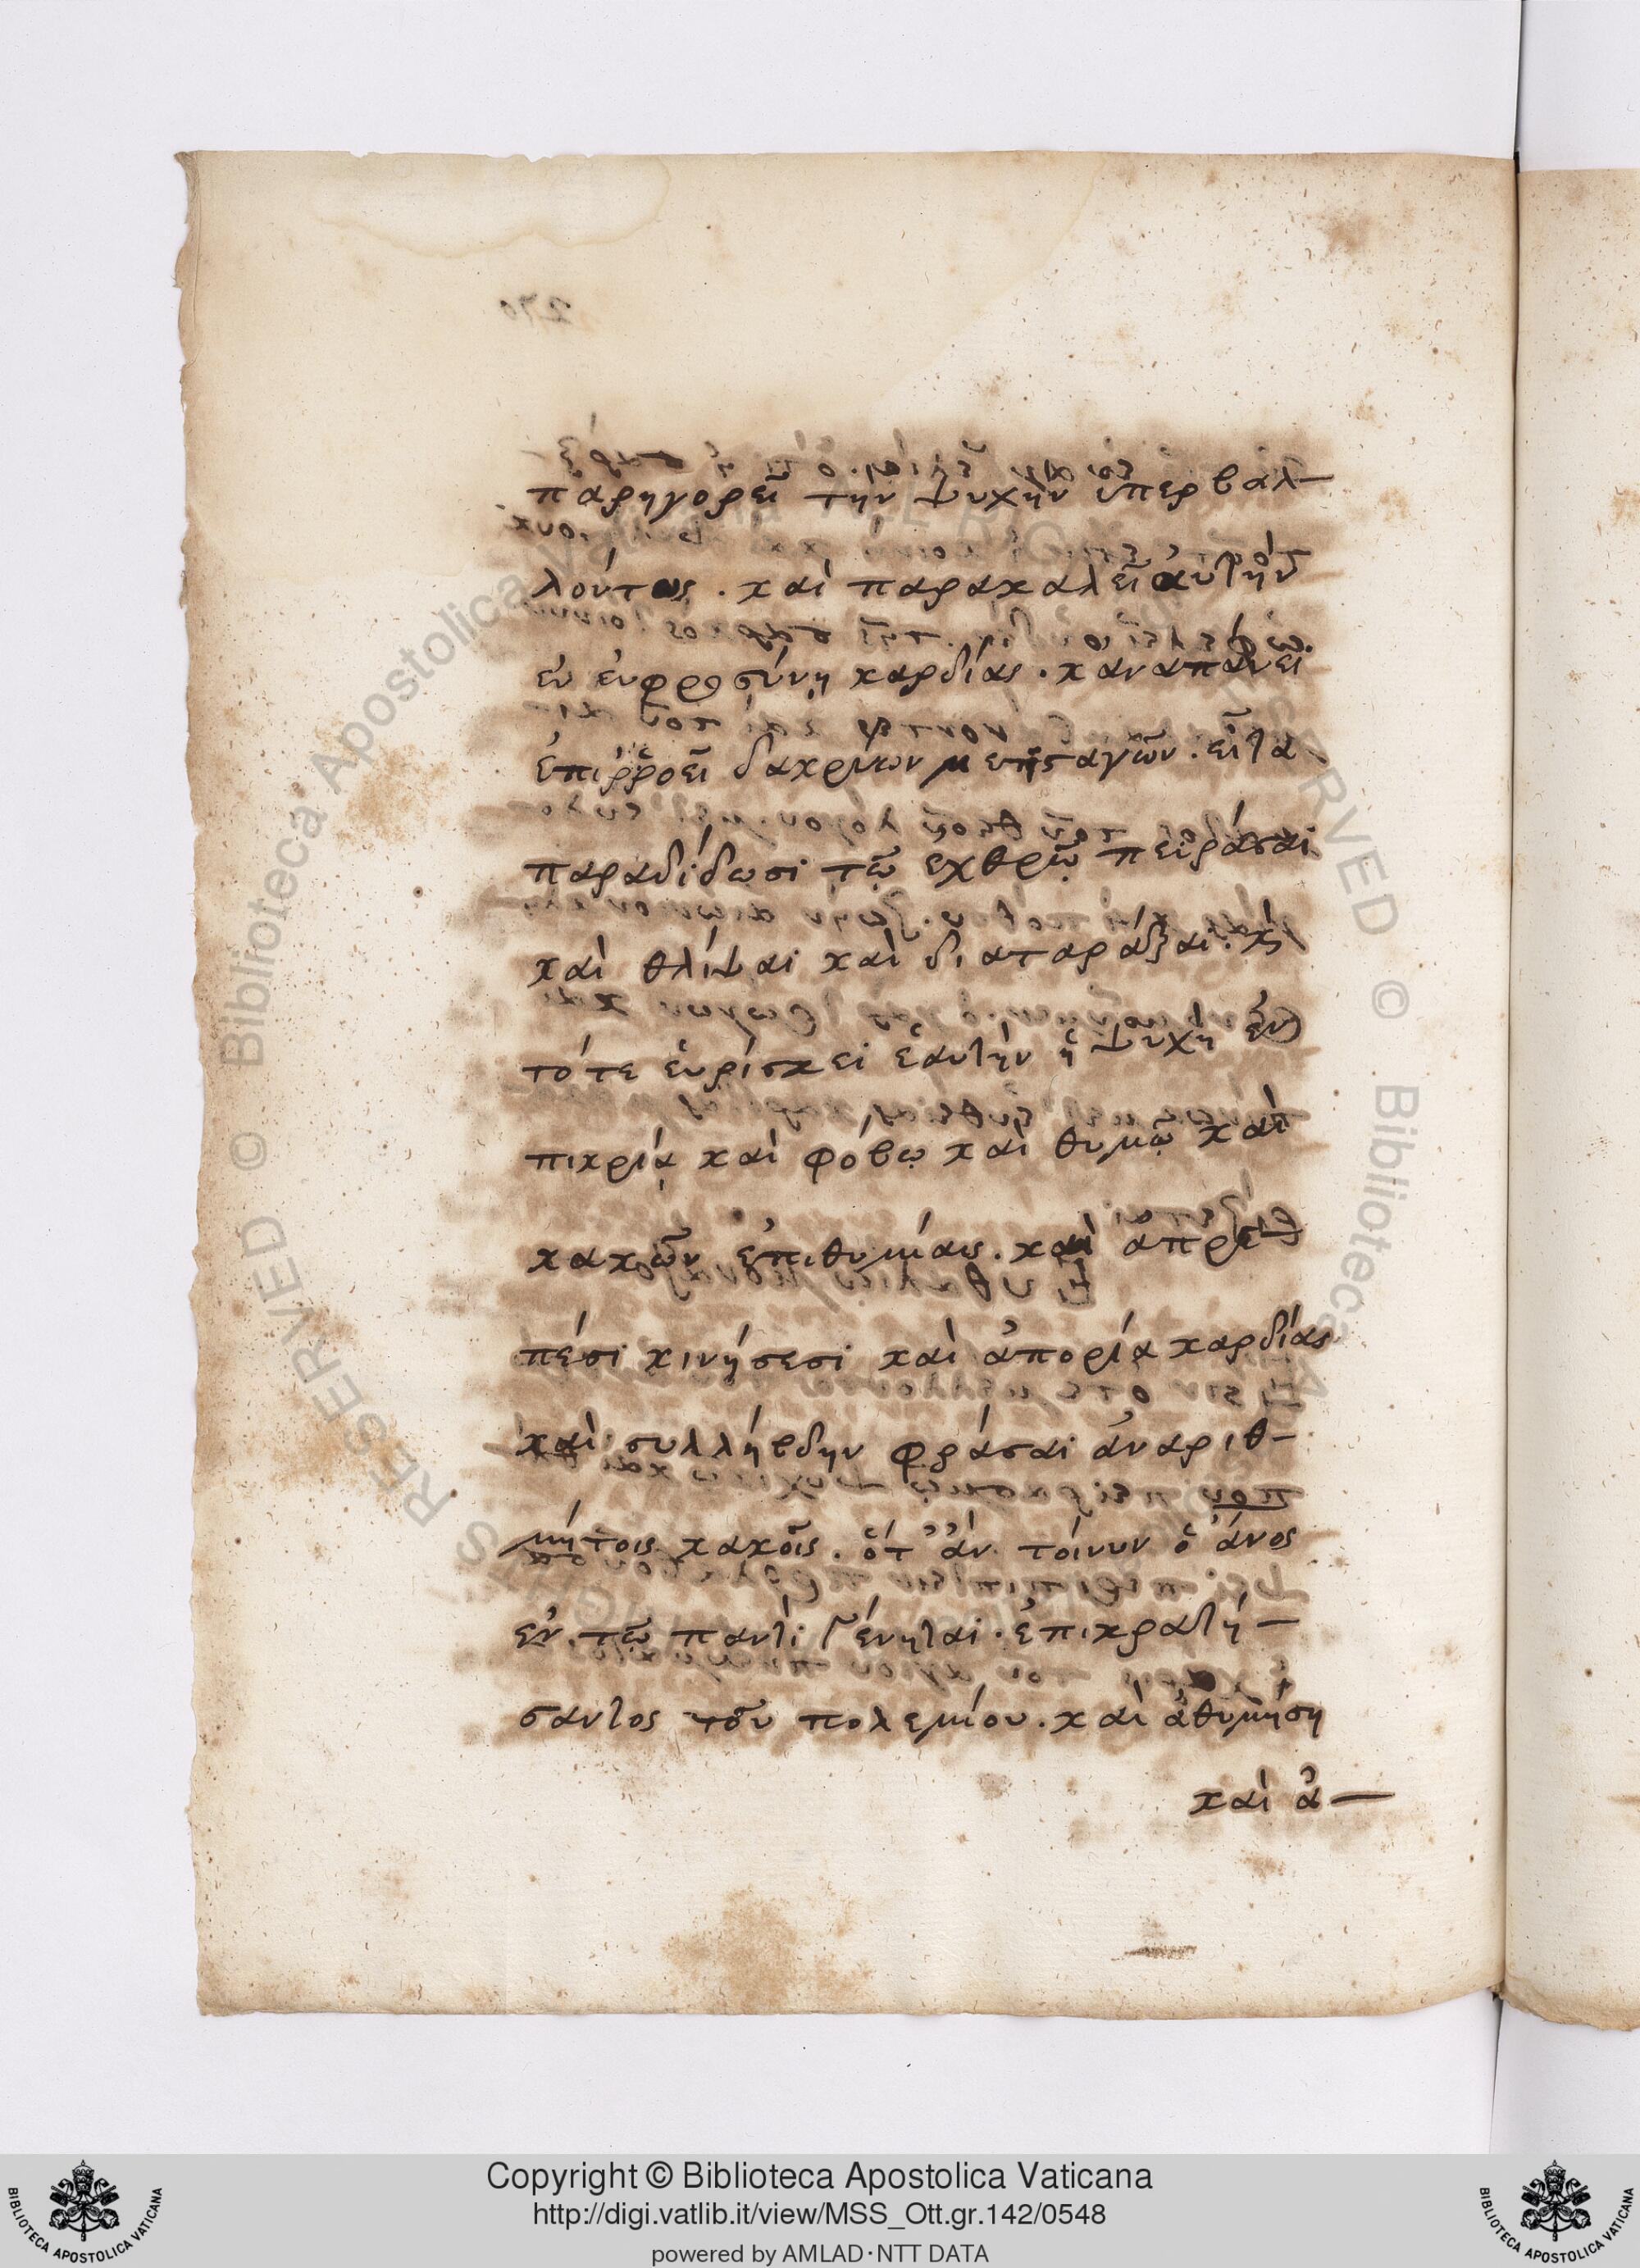 παρηγορεῖ τὴν ψυχὴν ὑπερβαλ-
λόντως . καὶ παρακαλεῖ αὐτὴν
ἐν εὐφροσύνῃ καρδίας . κἀναπαύει
ἐπιῤῥοεῖ δακρύων μεστ αγῶν . εἶτα
παραδίδωσι τῷ ἐχθρῷ πειράσαι
καὶ θλίψαι καὶ διαταράξαι . κὶ
τότε εὑρίσκει ἑαυτὴν ἡ ψυχὴ ἐν
πικρίᾳ καὶ φόβῳ καὶ θυμῷ καὶ
κακῶν ἐπιθυμίαις . καὶ ἀπρε-
πέσι κινήσεσι καὶ ἀπορίᾳ καρδίας
καὶ συλλήβδην φράσαι ἀναριθ-
μήτοις κακοῖς . ὅτ' ἂν τοίνυν ὁ ἄνος
ἐν τῷ παντὶ γένηται . ἐπικρατή-
σαντος τοῦ πολεμίου . καὶ ἀθυμήσῃ
καὶ ἀ-
Copyright © Biblioteca Apostolica Vaticana
http://digi.vatlib.it/view/MSS_Ott.gr.142/0548
powered by AMLAD·NTT DATA
BIBLIOTECA APOSTOLICA VATICANA
BIBLIOTECA APOSTOLICA VATICANA